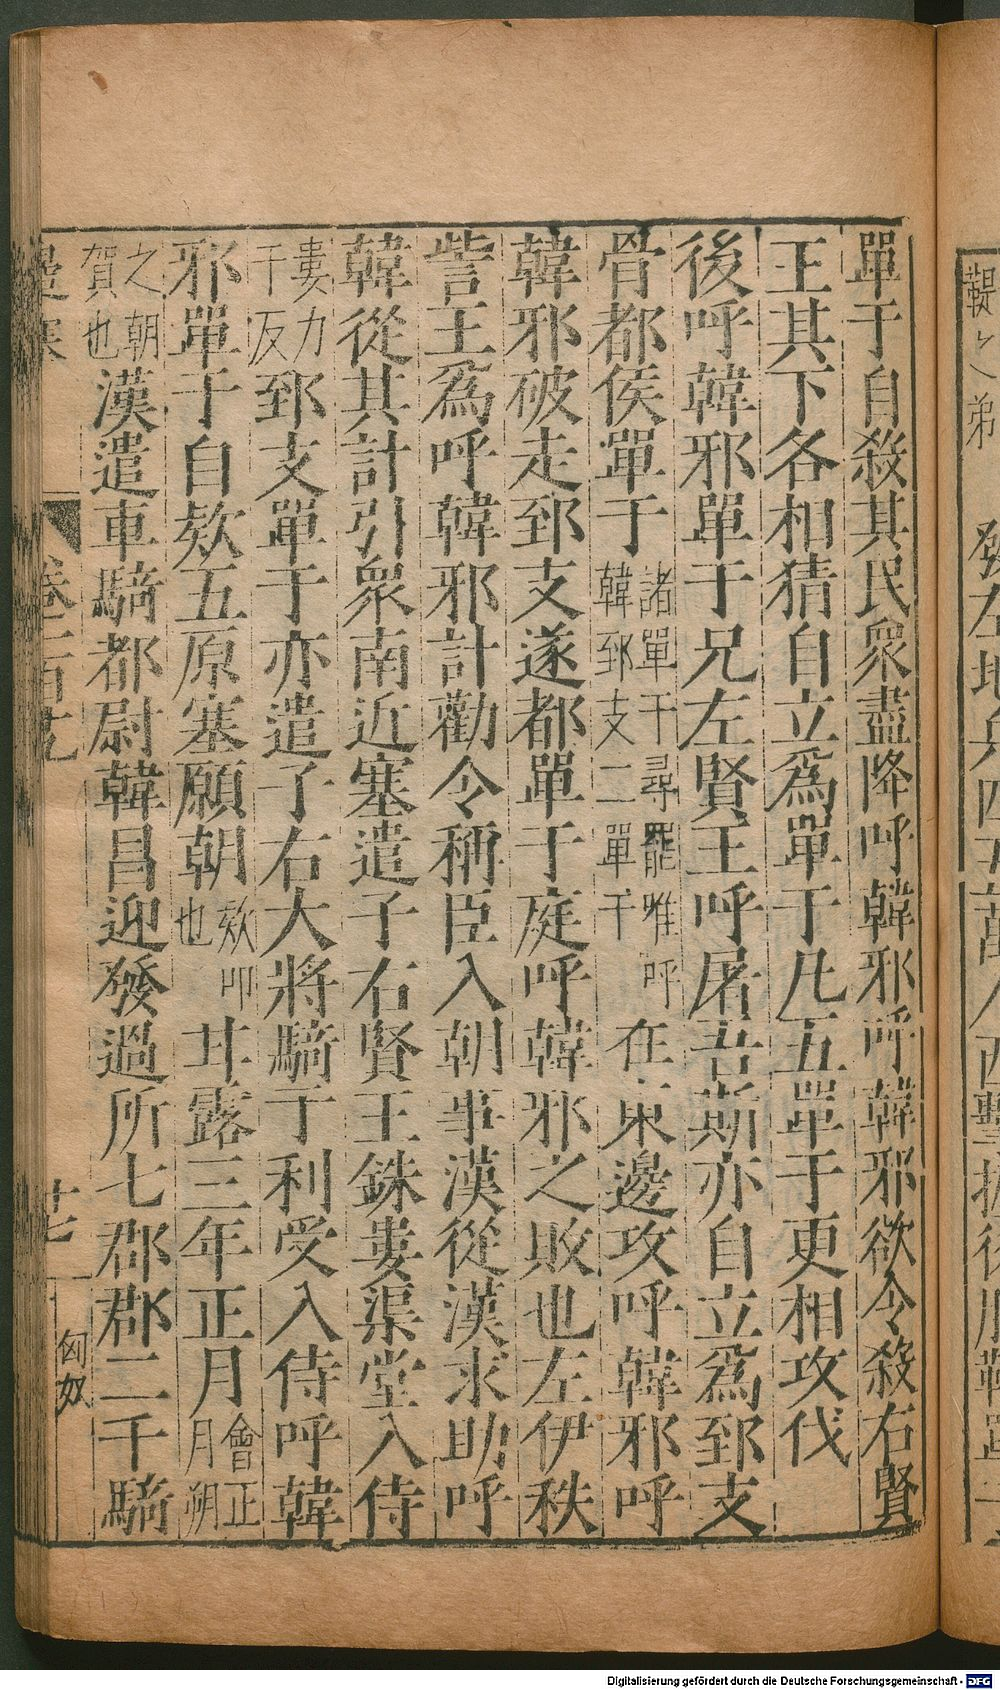 單于自殺其民衆盡降呼韓邪呼韓邪欲令殺右賢
王其下各相猜自立爲單于凡五單于更相攻伐
後呼韓邪單于兄左賢王呼屠吾斯亦自立爲郅支
骨都侯單于諸單于尋罷唯呼韓郅支二單于在東邊攻呼韓邪呼
韓邪破走郅支遂都單于庭呼韓邪之敗也左伊秩
訾王爲呼韓邪計勸令稱臣入朝事漢從漢求助呼
韓從其計引衆南近塞遣子右賢王銖婁渠堂入侍
婁力于反郅支單于亦遣子右大將騎于利受入侍呼韓
邪單于自欵五原塞願朝欵叩也甘露三年正月會正月朔
之朝賀也漢遣車騎都尉韓昌迎發過所七郡郡二千騎
卷二百九
十七
匈奴
Digitalisierung gefördert durch die Deutsche Forschungsgemeinschaft - DFG